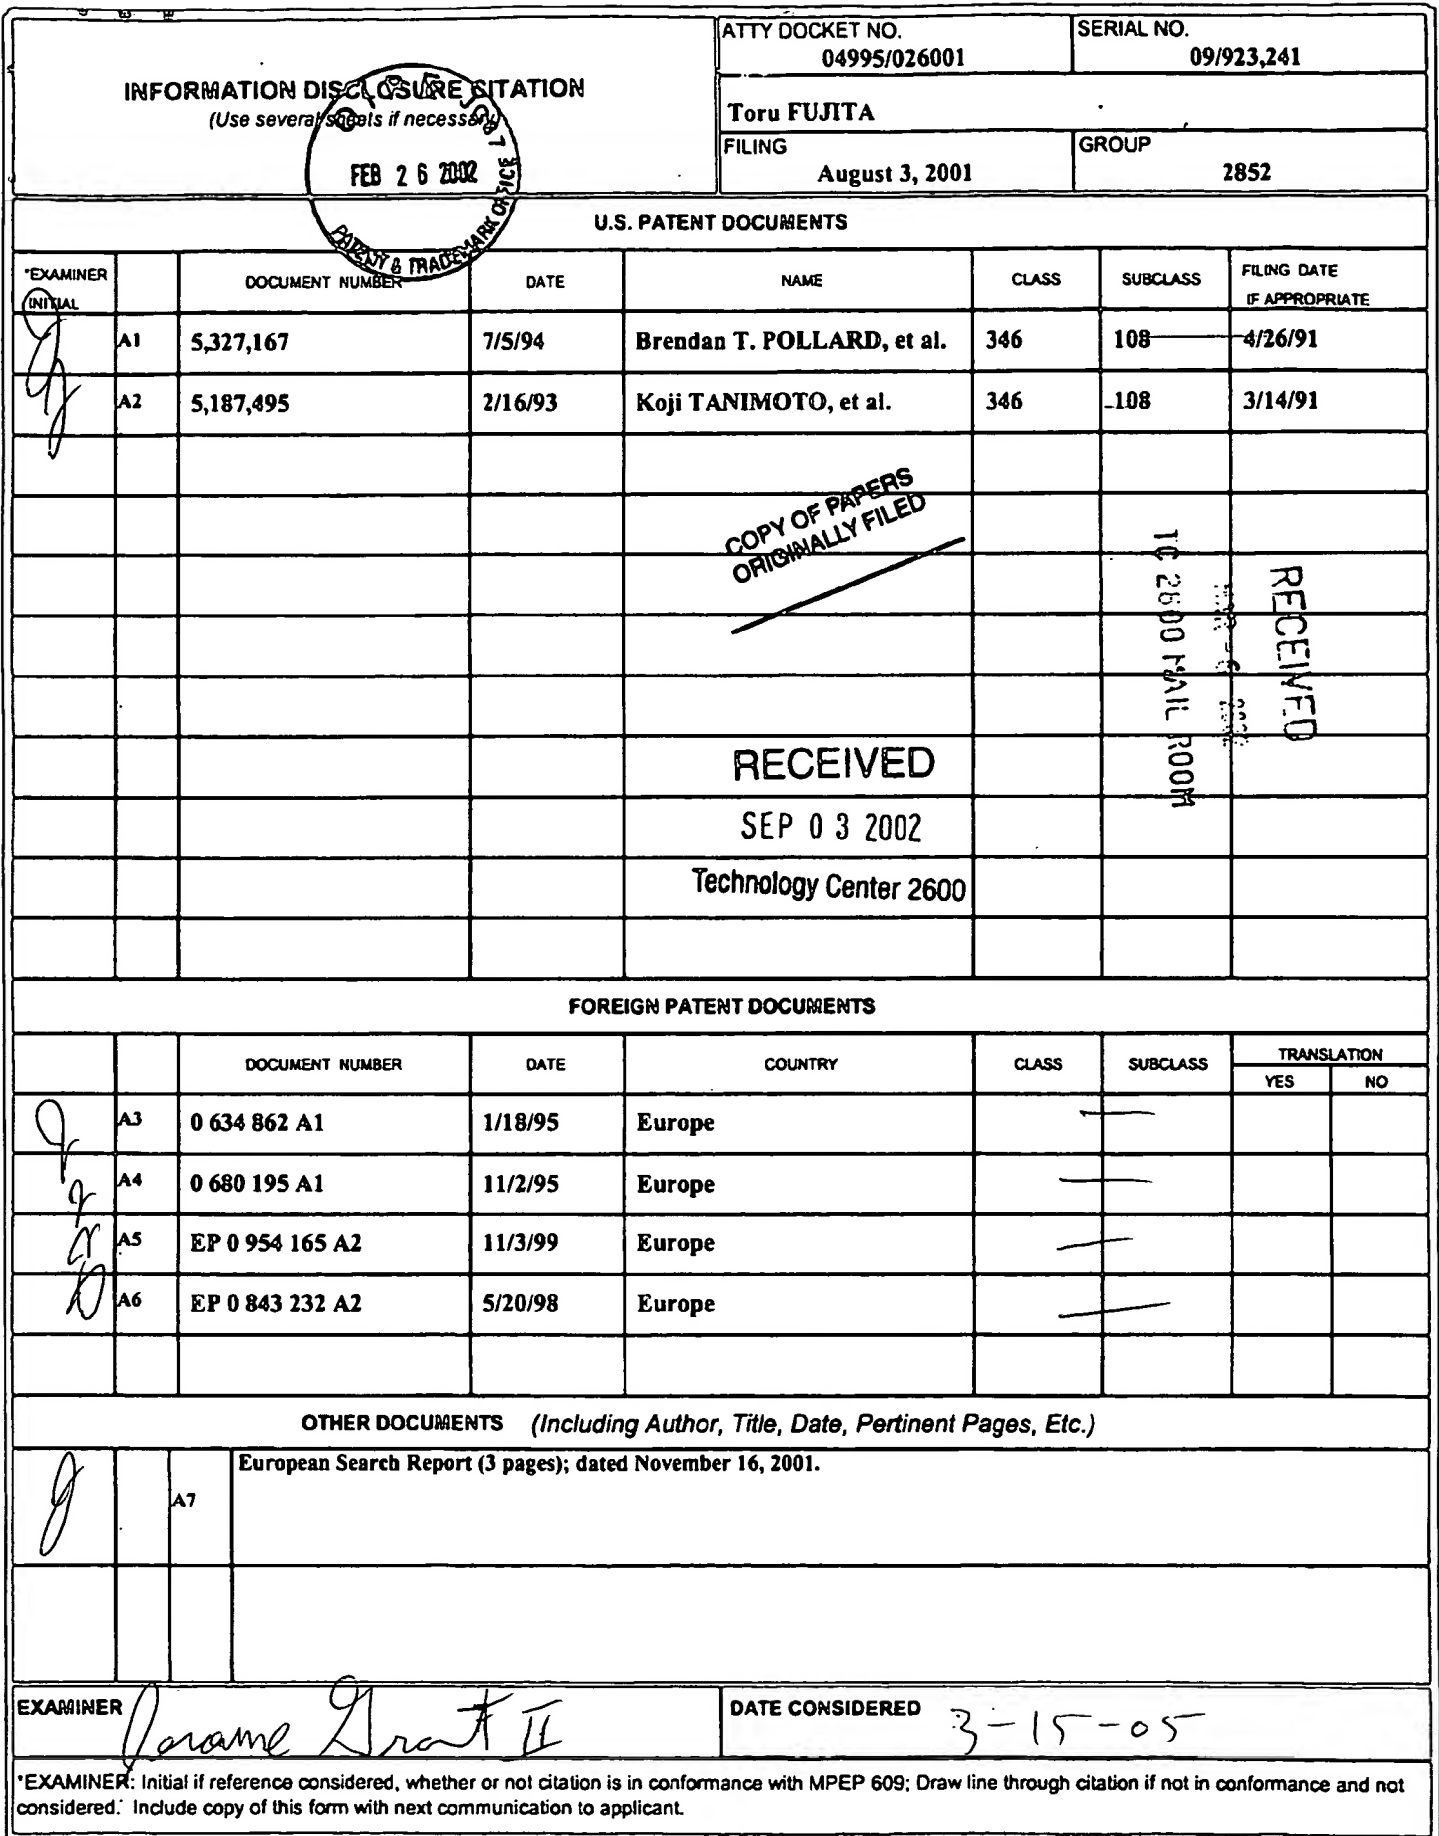 ATTY DOCKET NO.
04995/026001
SERIAL NO.
09/923,241
INFORMATION DISCLOSURE CITATION
(Use several sheets if necessary)
Toru FUJITA
FILING
August 3, 2001
GROUP
2852
FEB 2 6 2002
PATENT & TRADEMARK OFFICE
U.S. PATENT DOCUMENTS
*EXAMINER INITIAL
DOCUMENT NUMBER
DATE
NAME
CLASS
SUBCLASS
FILING DATE IF APPROPRIATE
A1 5,327,167 7/5/94 Brendan T. POLLARD, et al. 346 108 4/26/91
A2 5,187,495 2/16/93 Koji TANIMOTO, et al. 346 108 3/14/91
COPY OF PAPERS
ORIGINALLY FILED
RECEIVED
TC 2600 MAIL ROOM
RECEIVED
SEP 0 3 2002
Technology Center 2600
FOREIGN PATENT DOCUMENTS
DOCUMENT NUMBER
DATE
COUNTRY
CLASS
SUBCLASS
TRANSLATION
YES
NO
A3 0 634 862 A1 1/18/95 Europe
A4 0 680 195 A1 11/2/95 Europe
A5 EP 0 954 165 A2 11/3/99 Europe
A6 EP 0 843 232 A2 5/20/98 Europe
OTHER DOCUMENTS (Including Author, Title, Date, Pertinent Pages, Etc.)
A7 European Search Report (3 pages); dated November 16, 2001.
EXAMINER
Grant II
DATE CONSIDERED 3-15-05
*EXAMINER: Initial if reference considered, whether or not citation is in conformance with MPEP 609; Draw line through citation if not in conformance and not
considered. Include copy of this form with next communication to applicant.